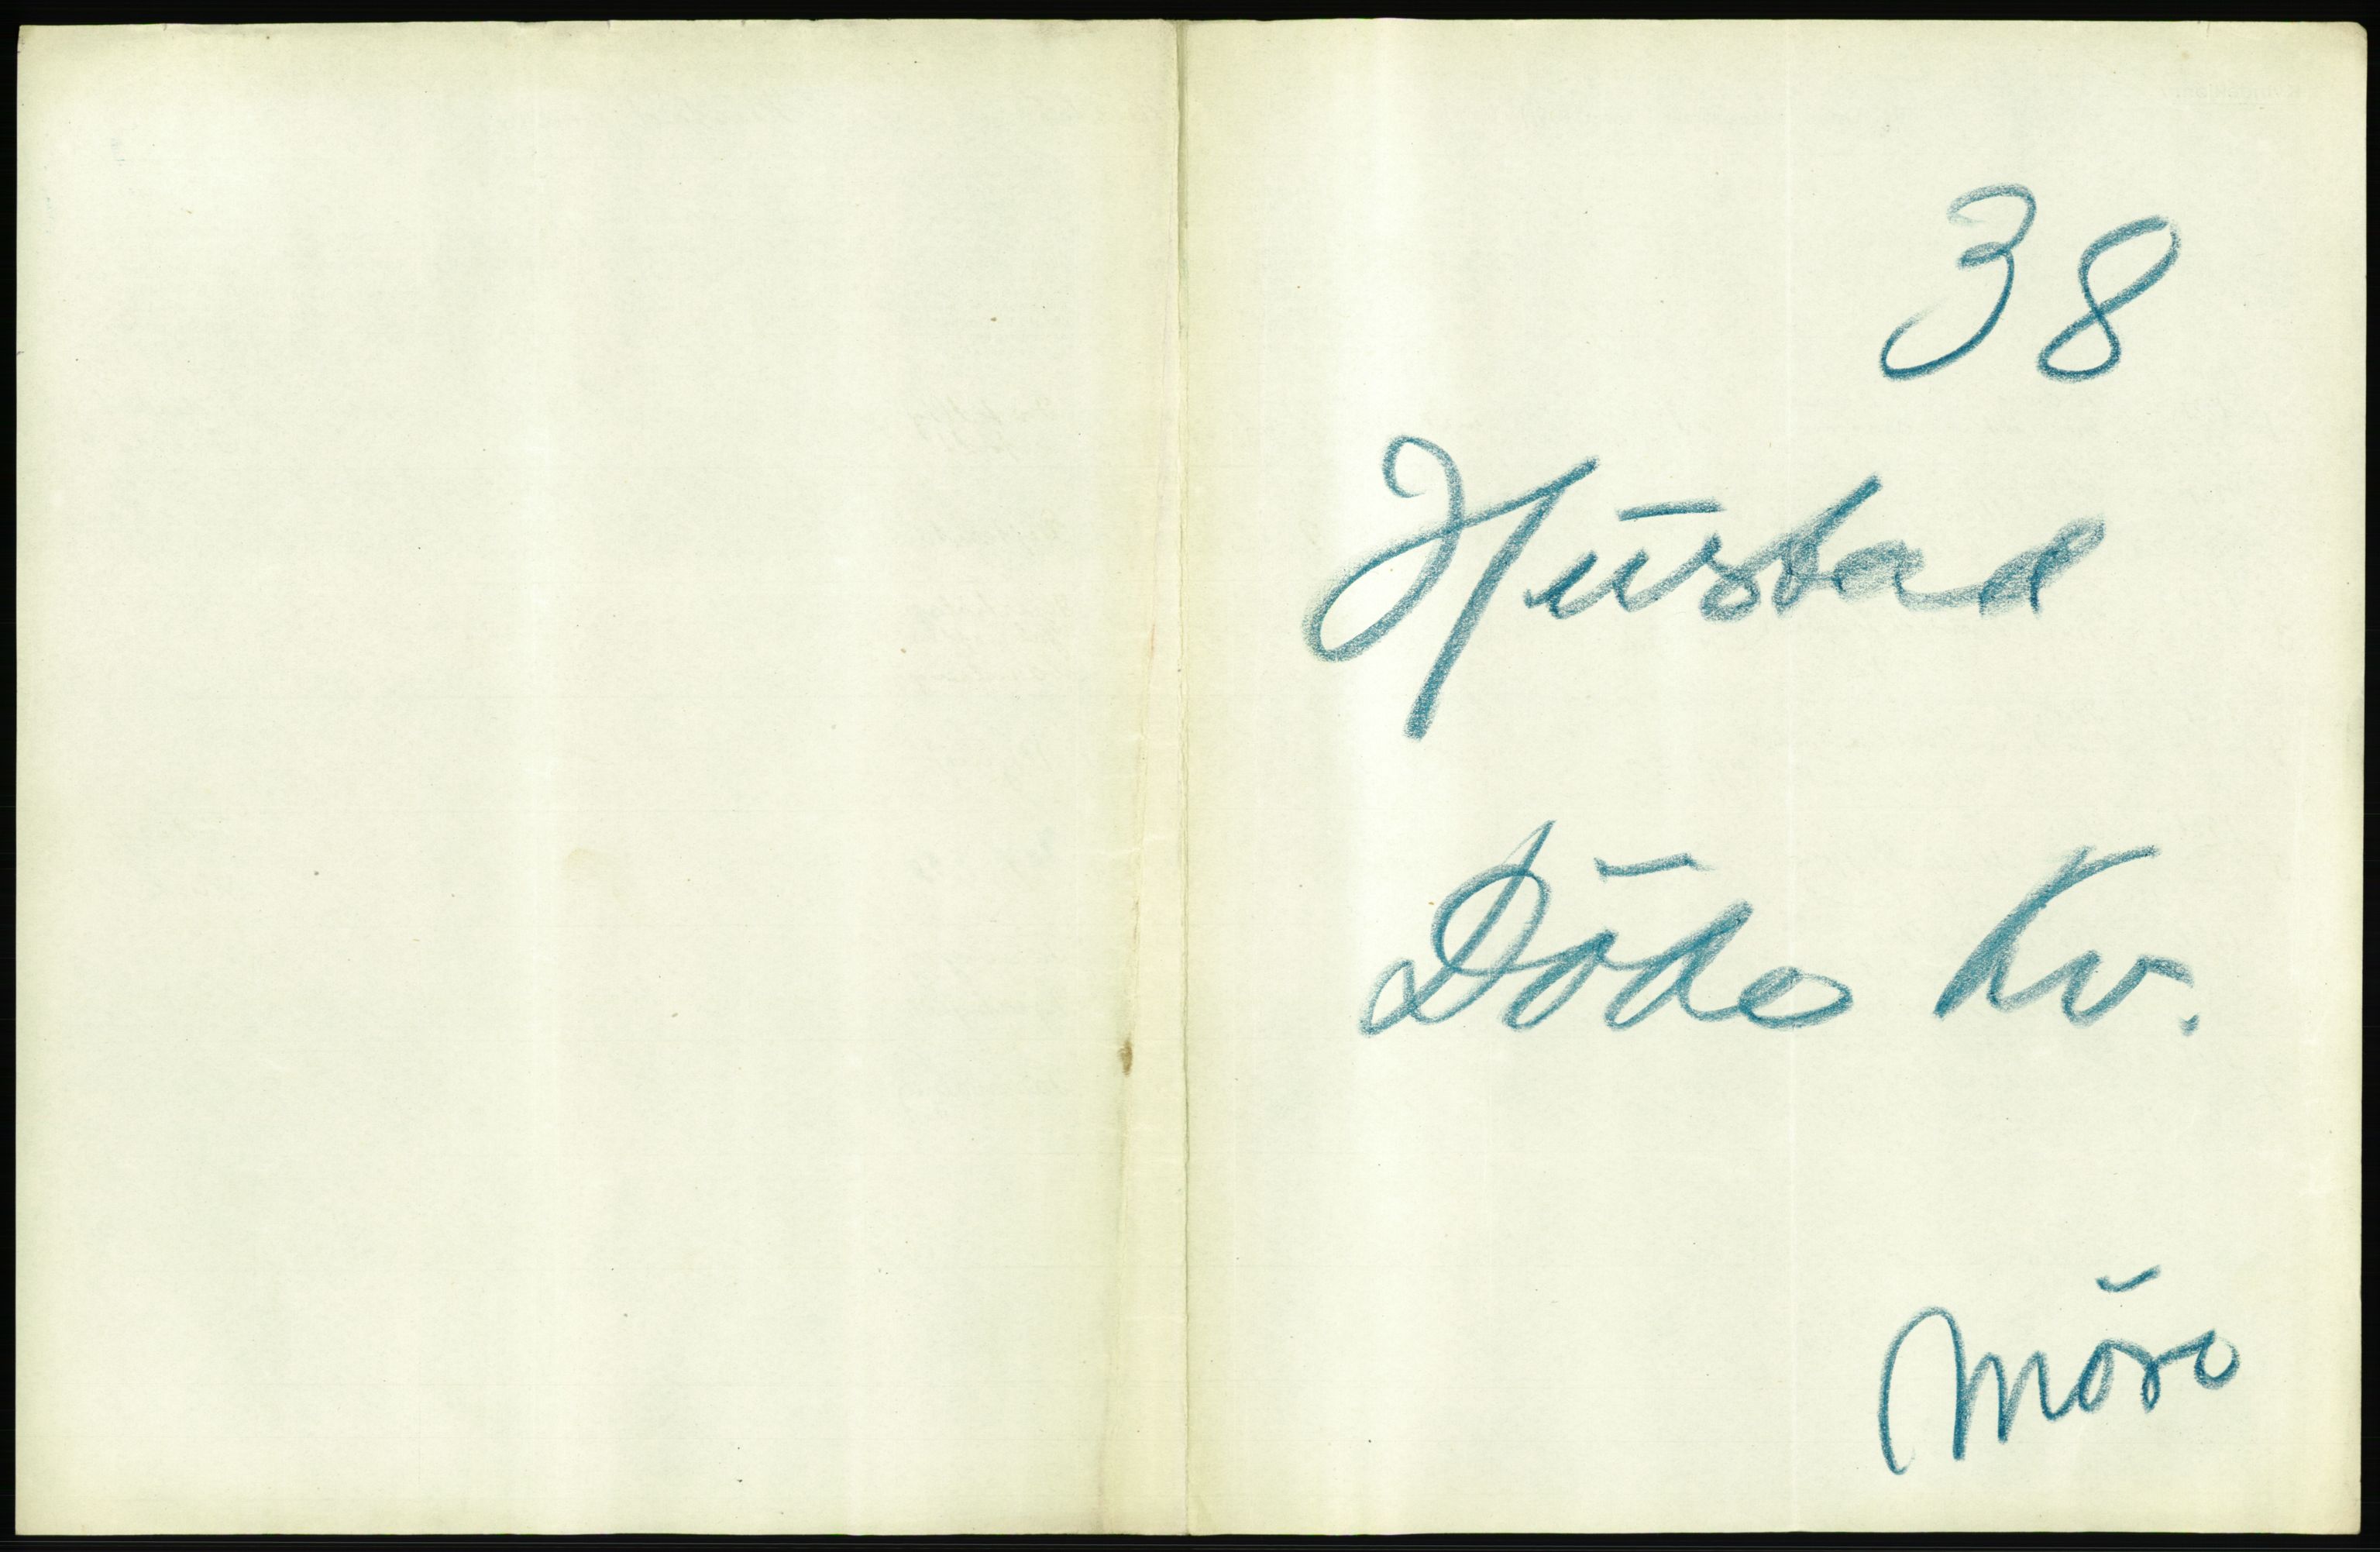 38
Hustad
Döde Kv.
Möre